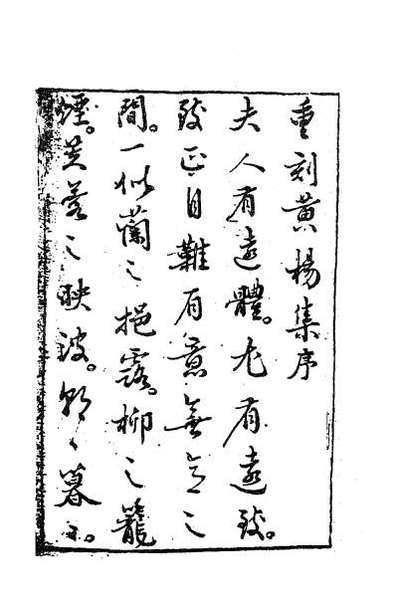 重刻黃楊集序
夫人有遠體。尤有遠致。
致正自難有意無意之
間。一似蘭之挹露。柳之籠
煙。芙蓉之映波。朝〻暮〻。